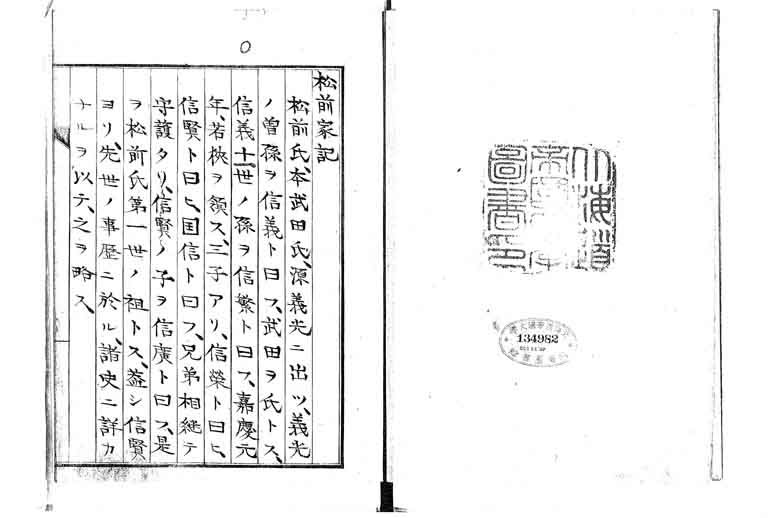 134982
松前家記
松前氏、本武田氏、源義光ニ出ツ、義光
ノ曽孫ヲ信義ト曰フ、武田ヲ氏トス、
信義十一世ノ孫ヲ信繁ト曰フ、嘉慶元
年、若狹ヲ領ス、三子アリ、信榮ト曰ヒ、
信賢ト曰ヒ、国信ト曰フ、兄弟相継テ
守護タリ、信賢ノ子ヲ信廣ト曰フ、是
ヲ松前氏第一世ノ祖トス、蓋シ信賢
ヨリ、先世ノ事歴ニ於ル、諸史ニ詳カ
ナルヲ以テ、之ヲ略ス、